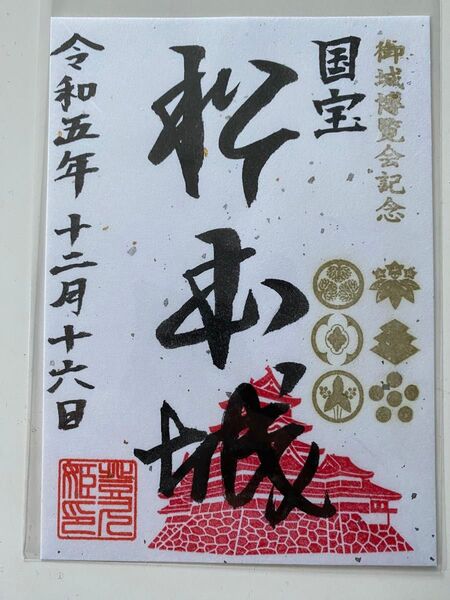 御城博覧会記念
国宝
松本城
令和五年 十二月十六日